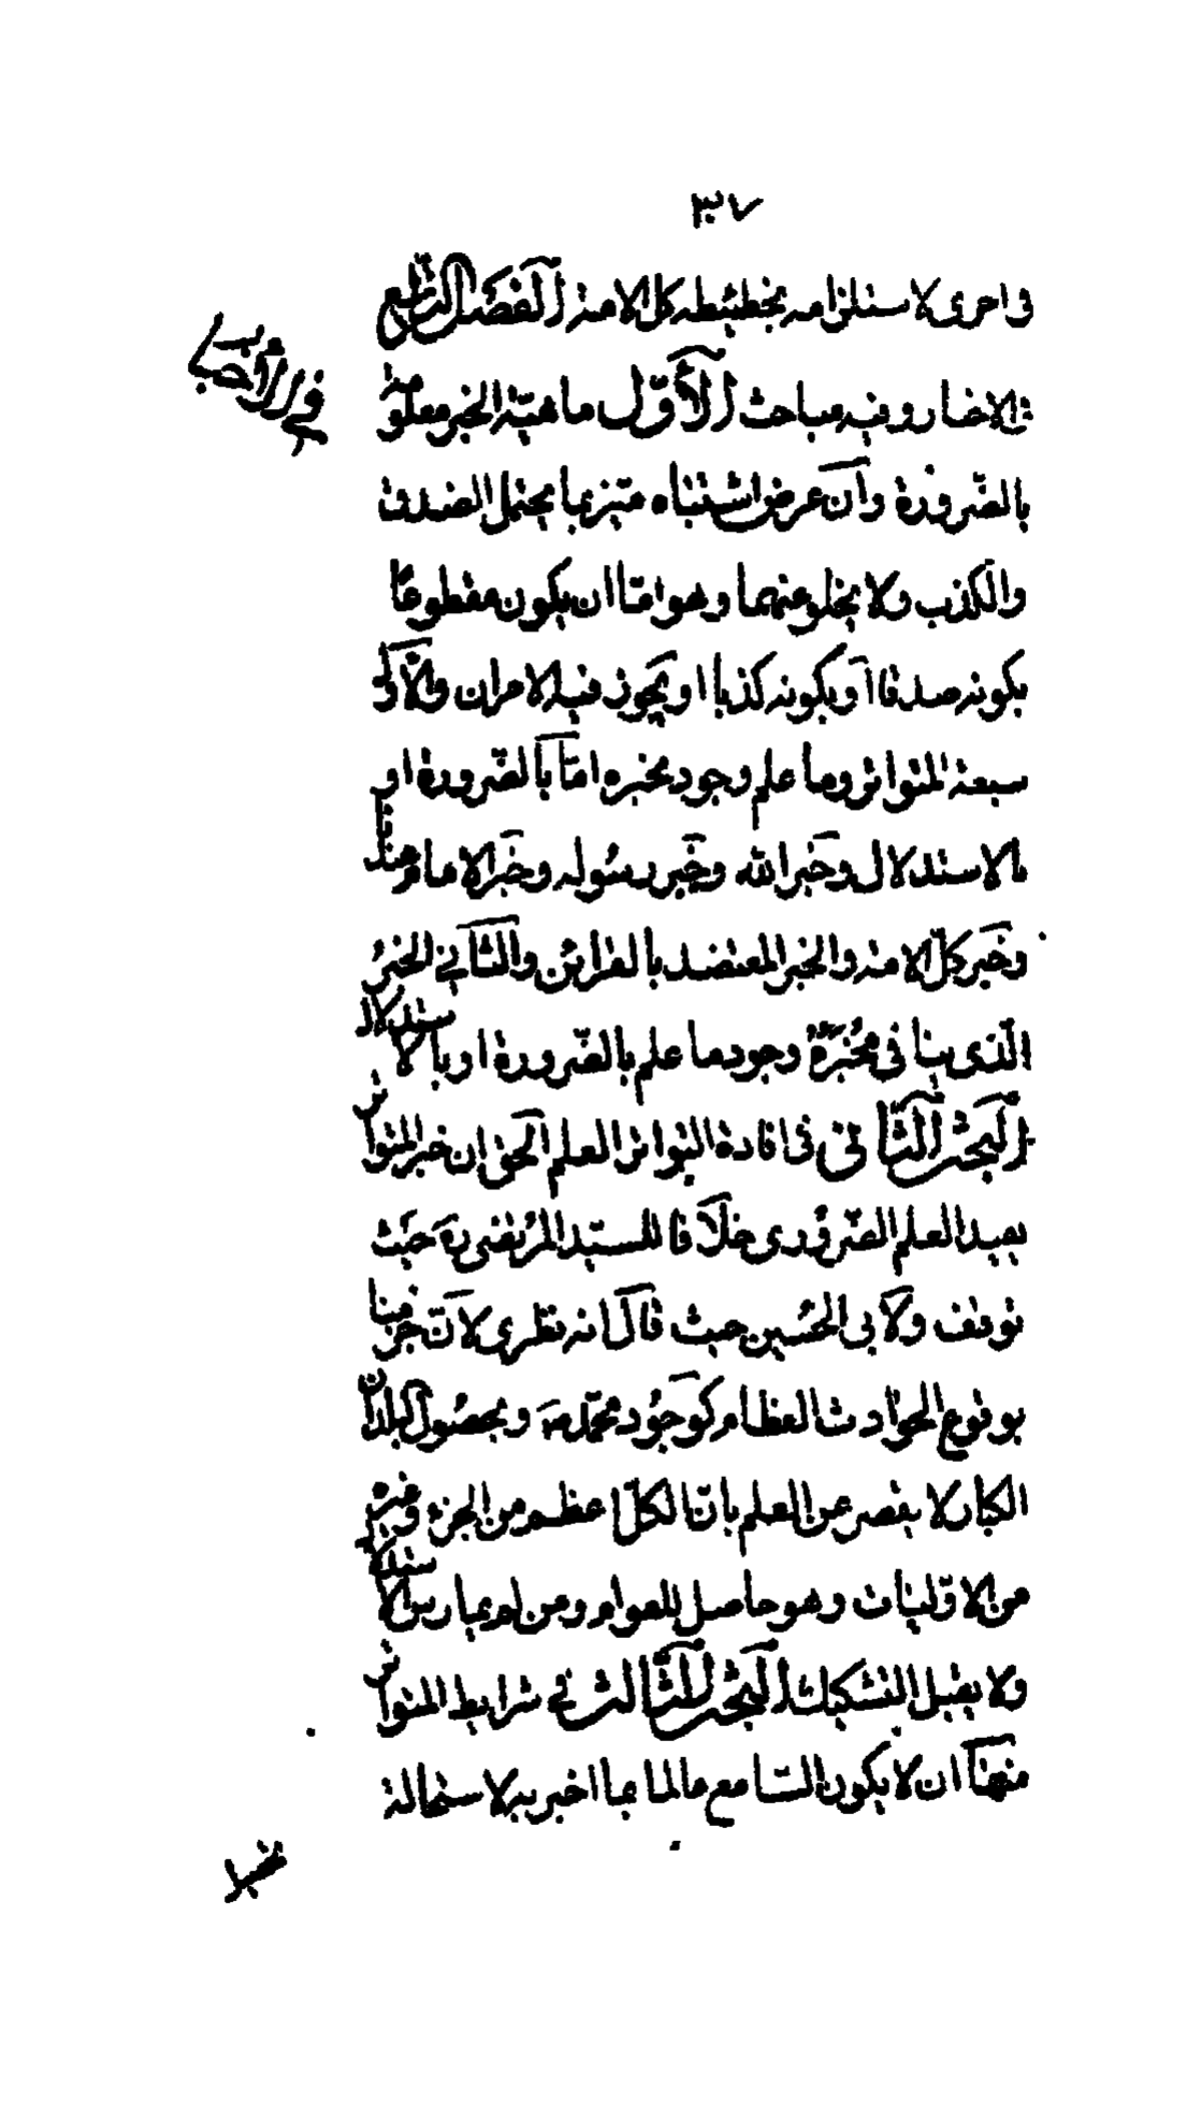 ٣٧
فى اخرى لاستلزامه تخطئة كل الامة الفصل الرابع
فى الاخبار وفيه مباحث الاوّل ماهيّة الخبر معلومة
بالضّرورة وان عرض اشتباه ميّز بما يحتمل الصدق
والكذب ولا يخلو عنهما وهو امّا ان يكون مقطوعًا
بكونه صدقا او بكونه كذبا او يجوز فيه الامران والاوّل
سبعة المتواتر وما علم وجود مخبره امّا بالضّرورة او
بالاستدلال وخبر الله وخبر رسوله وخبر الامام عندنا
وخبر كلّ الامة والخبر المعتضد بالقرائن والثّانى الخبر
الّذى ينافى مخبره وجود ما علم بالضّرورة او بالاستدلال
البحث الثّانى فى افادة التواتر العلم الحق ان خبر المتواتر
يفيد العلم الضّرورى خلافا للسيّد المرتضى ره حيث
توقف ولابى الحسين حيث قال انه نظرى لانّ جزمنا
بوقوع الحوادث العظام كوجود محمّد ص وبحصول البلدان
الكبار لا يقصر عن العلم بانّ الكلّ اعظم من الجزء وغيره
من الاوّليات وهو حاصل للعوام ومن لم يمارس الاستدلال
ولا يقبل التشكيك البحث الثّالث فى شرايط المتواتر
منها ان لا يكون السّامع عالما بما اخبر به لاستحالة
فى الأخبار